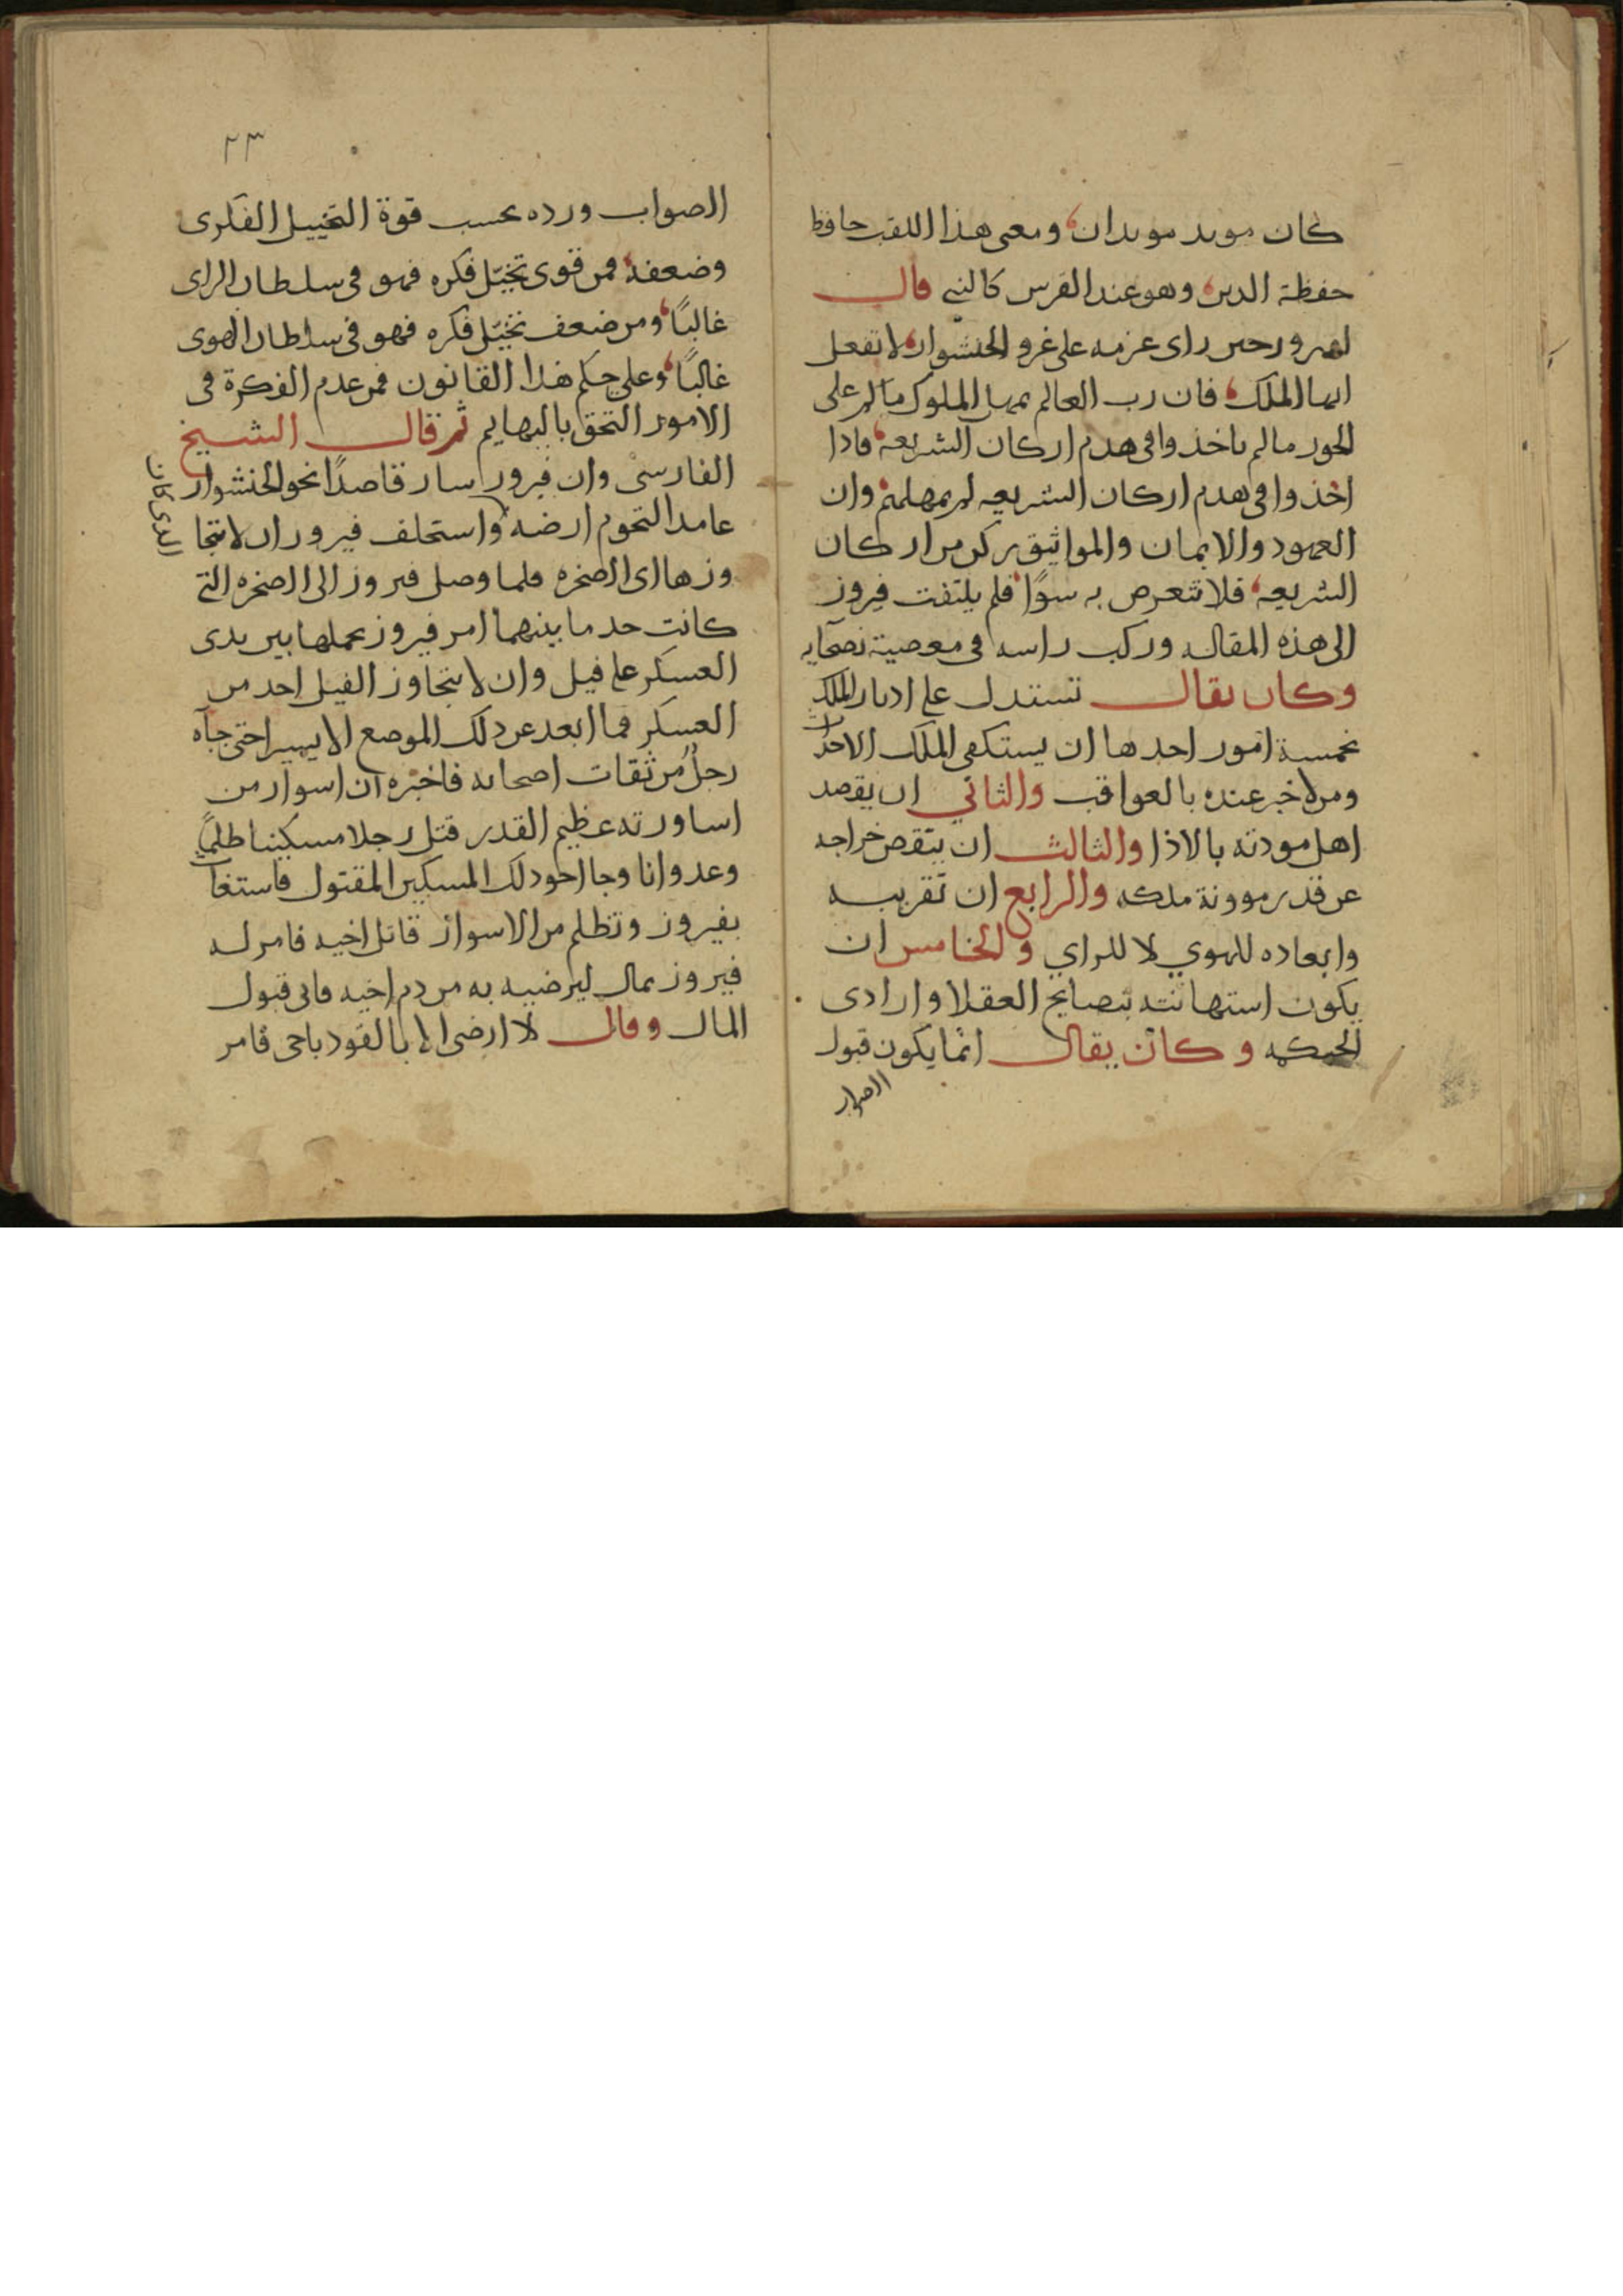 كان موبد موبدان ومعنى هذا اللقب حافظ
حفظة الدين وهو عند الفرس كالنبي قال
لفيروز حين راى عزمه على غزو الخنشوار لا تفعل
ايها الملك فان رب العالم يمهل الملوك ما لم على
الجور ما لم ياخذوا في هدم اركان الشريعه فاذا
اخذوا في هدم اركان الشريعه لم يمهلهم وان
العهود والايمان والمواثيق ركن من اركان
الشريعه فلا تتعرض به سوًا فلم يلتفت فيروز
الى هذه المقاله وركب راسه في معصية نصحآيه
وكان يقال تستدل على ادبار الملك
بخمسة امور احدها ان يستكفى الملك الاحداث
ومن لا خبر عنده بالعواقب والثاني ان يقصد
اهل مودته بالاذا والثالث ان ينقص خراجه
عن قدر موونة ملكه والرابع ان تقريبه
وابعاده للهوي لا للراي والخامس ان
يكون استهانته بنصايح العقلا واراى ذى
الحنكه وكان يقال انما يكون قبول
الصواب
٢٣
الصواب ورده بحسب قوة التخييل الفكرى
وضعفه فمن قوى تخيّل فكره فهو فى سلطان الراى
غالبًا ومن ضعف تخيّل فكره فهو فى سلطان الهوى
غالبًا وعلى حكم هذا القانون فمن عدم الفكرة فى
الامور التحق بالبهايم ثم قال الشيخ
الفارسى وان فيروز سار قاصدًا نحو الخنشوار
عامدا لتخوم ارضه واستحلف فيروز ان لا يتجا
الذى كانا
وزها اى الصخره فلما وصل فيروز الى الصخره التى
كانت حد ما بينهما امر فيروز بحملها بين يدى
العسكر على فيل وان لا يتجاوز الفيل احد من
العسكر فما ابعد عن ذلك الموضع الا يسيرا حتى جآه
رجلٌ من ثقات اصحابه فاخبره ان اسوار من
اساورته عظيم القدر قتل رجلا مسكينا ظلمًا
وعدوانا وجا اخو ذلك المسكين المقتول فاستغاث
بفيروز وتظلم من الاسوار قاتل اخيه فامر له
فيروز بمال ليرضيه به من دم اخيه فابى قبول
المال وقال لا ارضى الا بالقود باخى فامر